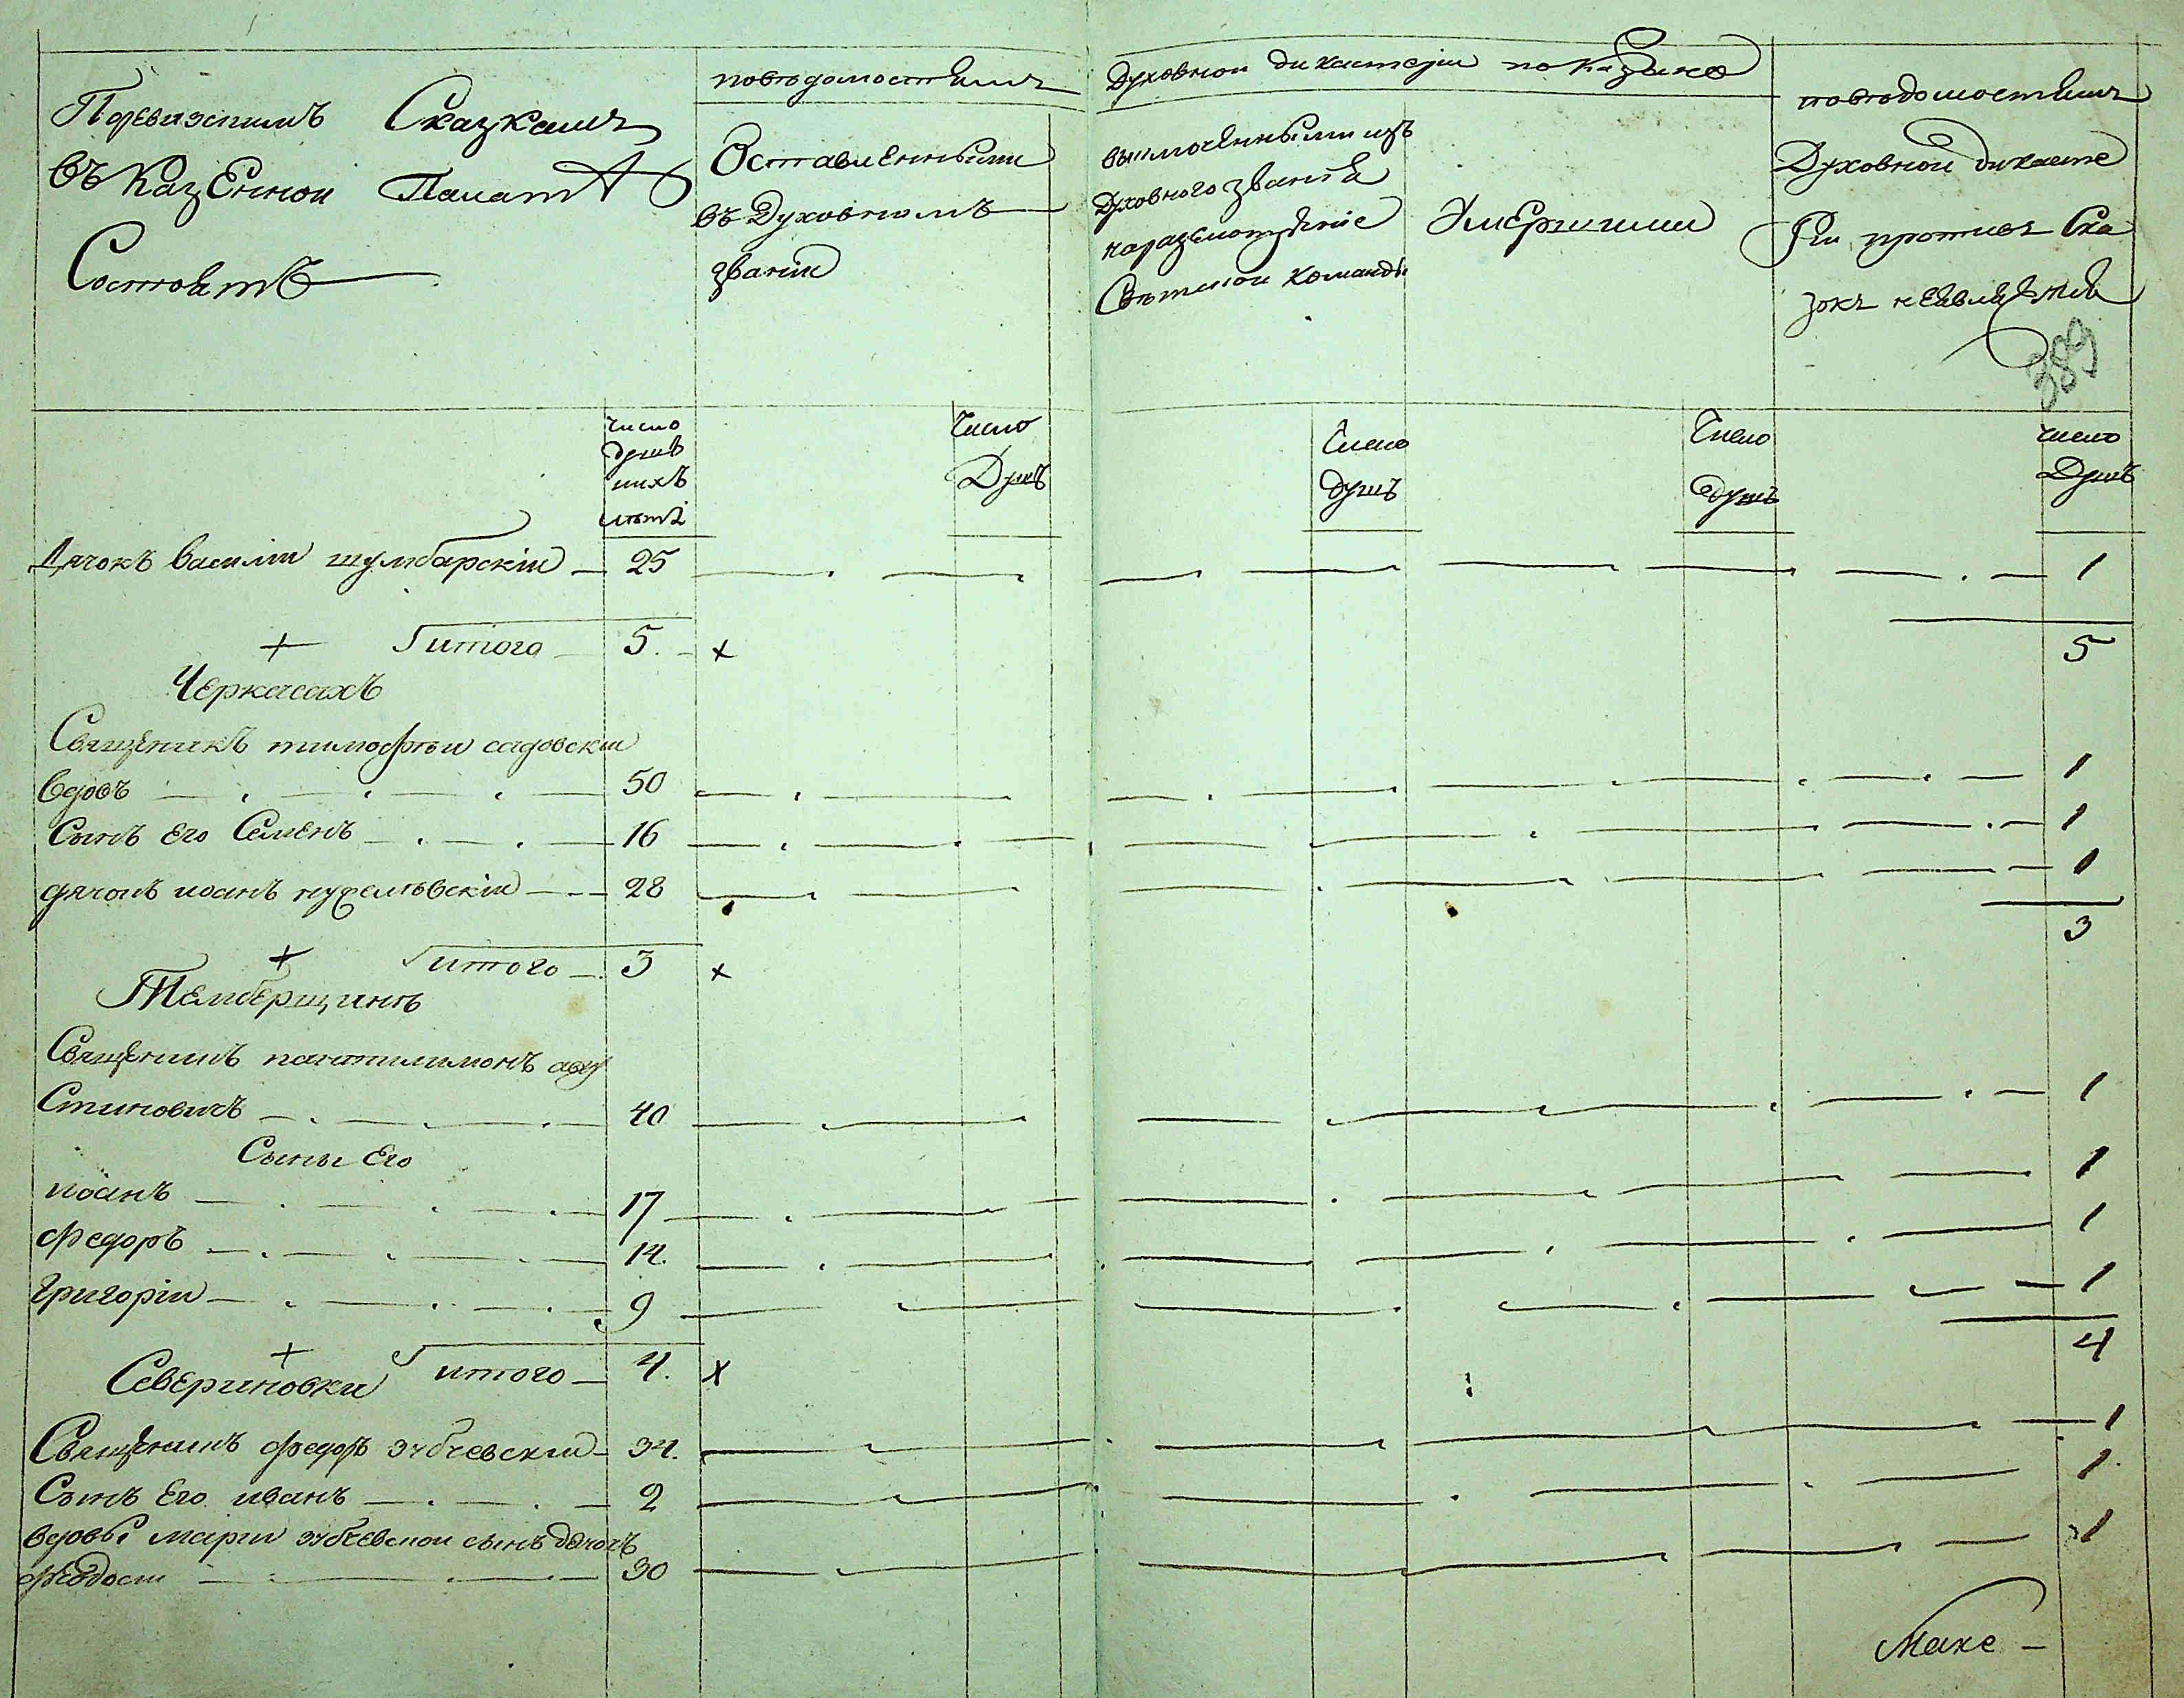 Поревизскимъ Сказкамъ
въ Казенной Палатѣ
Состоитъ
поведомостямъ Духовнои дикастеріи показано
Оставленными
въ Духовномъ
званіи
выключенными изъ
Духовного званія
наразсмотрѣніе
Свѣтской команды
Умершими
поведомостямъ
Духовнои дикасте
ріи противъ Ска
зокъ неявляется
389
число
душъ
ихъ
лѣтъ
Число
Душъ
Число
душъ
Число
душъ
число
Душъ
Дячокъ Василіи шумбарскіи 25 1
+ итого 5. x 5
Черкасахъ
Священикъ тимофеи садовскіи
вдовъ 50 1
Сынъ Его Семенъ 16 1
дячокъ иоанъ 28 1
3
+ итого 3 x
Темберщинъ
Священикъ пантилимонъ авгу
Стиновичъ 40 1
Сыны Его
иоанъ 17 1
Федоръ 14. 1
григоріи 9 1
4
+ итого 4. x
Севериновки
Священикъ федоръ зубчевскіи 34. 1
Сынъ Его иванъ 2 1
вдовы маріи зубчевскои сынъ дячокъ
феодосіи 30 1
Махе